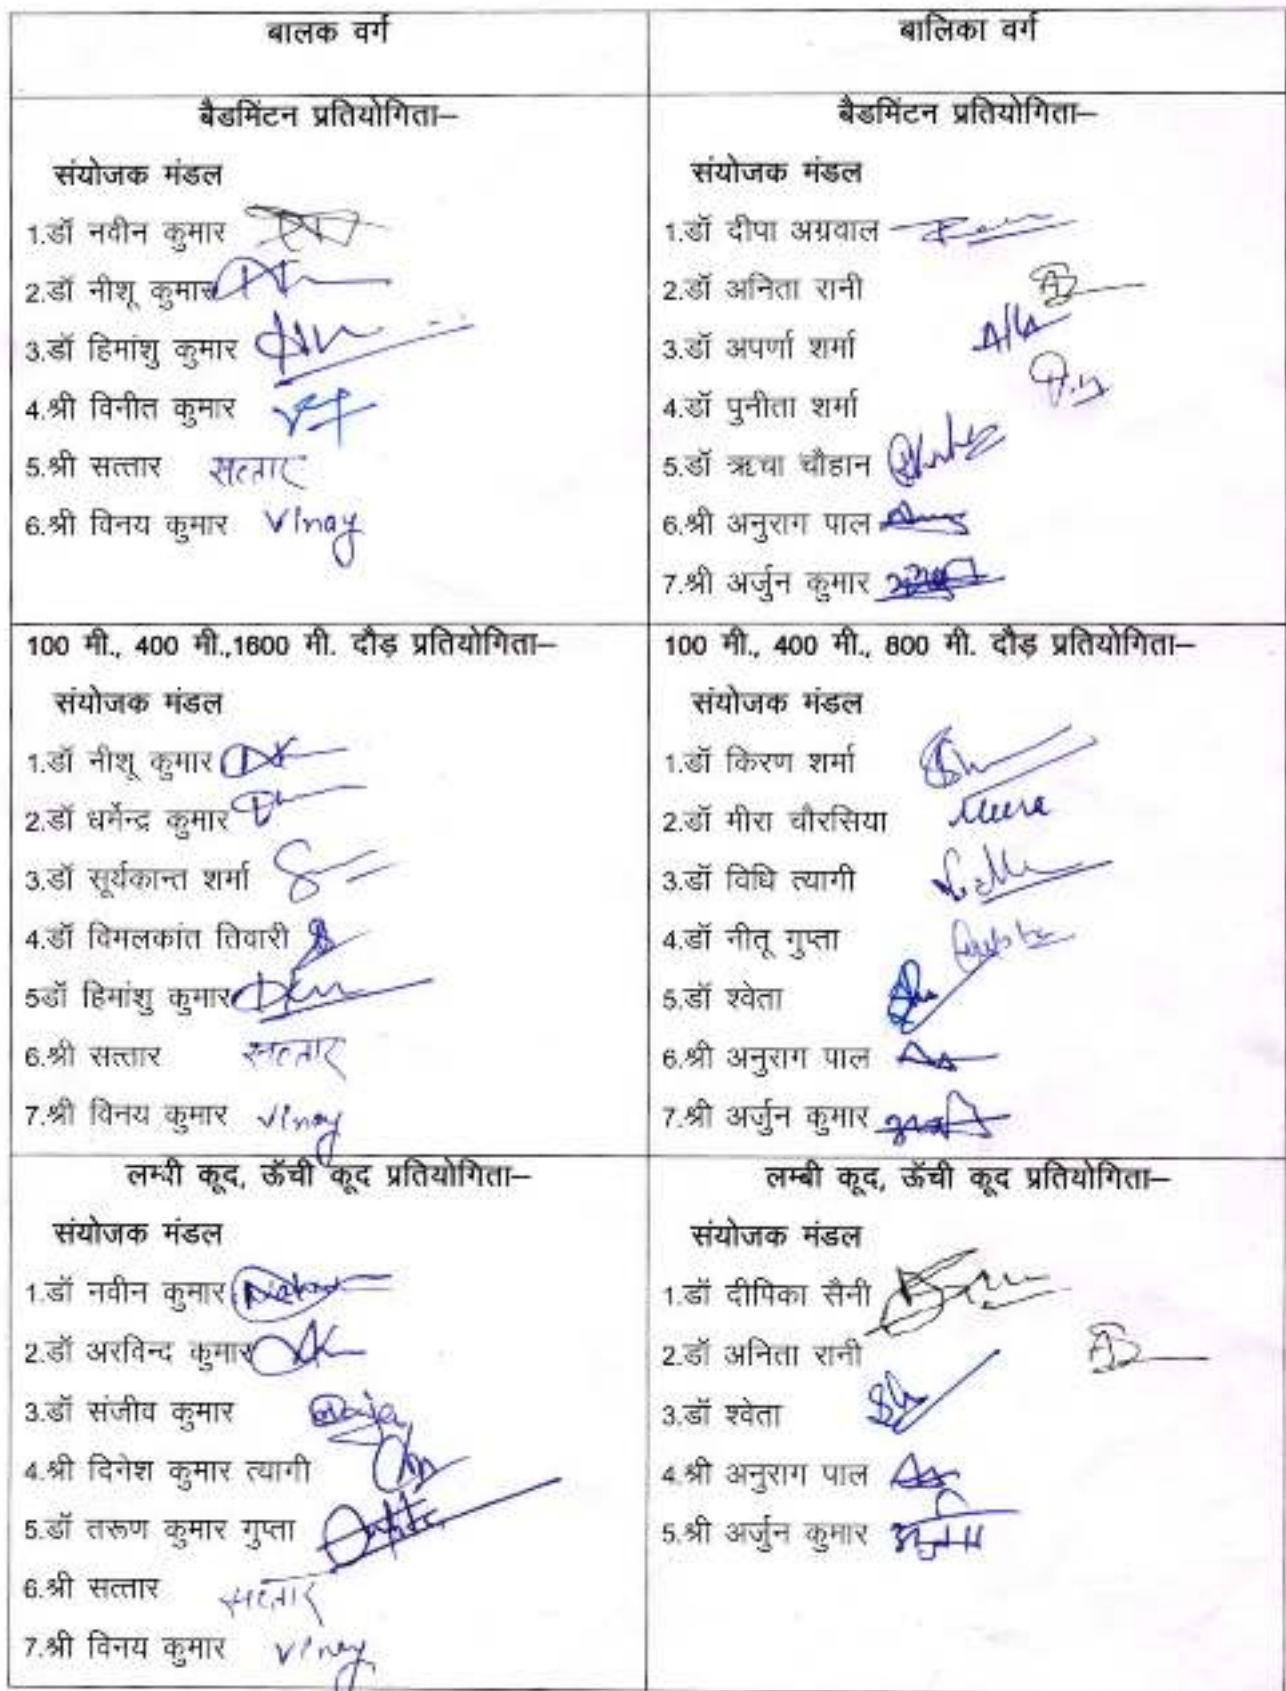 बालक वर्ग
बैडमिंटन प्रतियोगिता–
संयोजक मंडल
1.डॉ नवीन कुमार
2.डॉ नीशू कुमार
3.डॉ हिमांशु कुमार
4.श्री विनीत कुमार
5.श्री सत्तार सत्तार
6.श्री विनय कुमार Vinay
बालिका वर्ग
बैडमिंटन प्रतियोगिता–
संयोजक मंडल
1.डॉ दीपा अग्रवाल
2.डॉ अनिता रानी
3.डॉ अपर्णा शर्मा
4.डॉ पुनीता शर्मा
5.डॉ ऋचा चौहान
6.श्री अनुराग पाल
7.श्री अर्जुन कुमार
100 मी., 400 मी.,1600 मी. दौड़ प्रतियोगिता–
संयोजक मंडल
1.डॉ नीशू कुमार
2.डॉ धर्मेन्द्र कुमार
3.डॉ सूर्यकान्त शर्मा
4.डॉ विमलकांत तिवारी
5डॉ हिमांशु कुमार
6.श्री सत्तार सत्तार
7.श्री विनय कुमार Vinay
100 मी., 400 मी., 800 मी. दौड़ प्रतियोगिता–
संयोजक मंडल
1.डॉ किरण शर्मा
2.डॉ मीरा चौरसिया Meera
3.डॉ विधि त्यागी
4.डॉ नीतू गुप्ता
5.डॉ श्वेता
6.श्री अनुराग पाल
7.श्री अर्जुन कुमार
लम्बी कूद, ऊँची कूद प्रतियोगिता–
संयोजक मंडल
1.डॉ नवीन कुमार
2.डॉ अरविन्द कुमार
3.डॉ संजीव कुमार
4.श्री दिनेश कुमार त्यागी
5.डॉ तरूण कुमार गुप्ता
6.श्री सत्तार सत्तार
7.श्री विनय कुमार Vinay
लम्बी कूद, ऊँची कूद प्रतियोगिता–
संयोजक मंडल
1.डॉ दीपिका सैनी
2.डॉ अनिता रानी
3.डॉ श्वेता
4.श्री अनुराग पाल
5.श्री अर्जुन कुमार